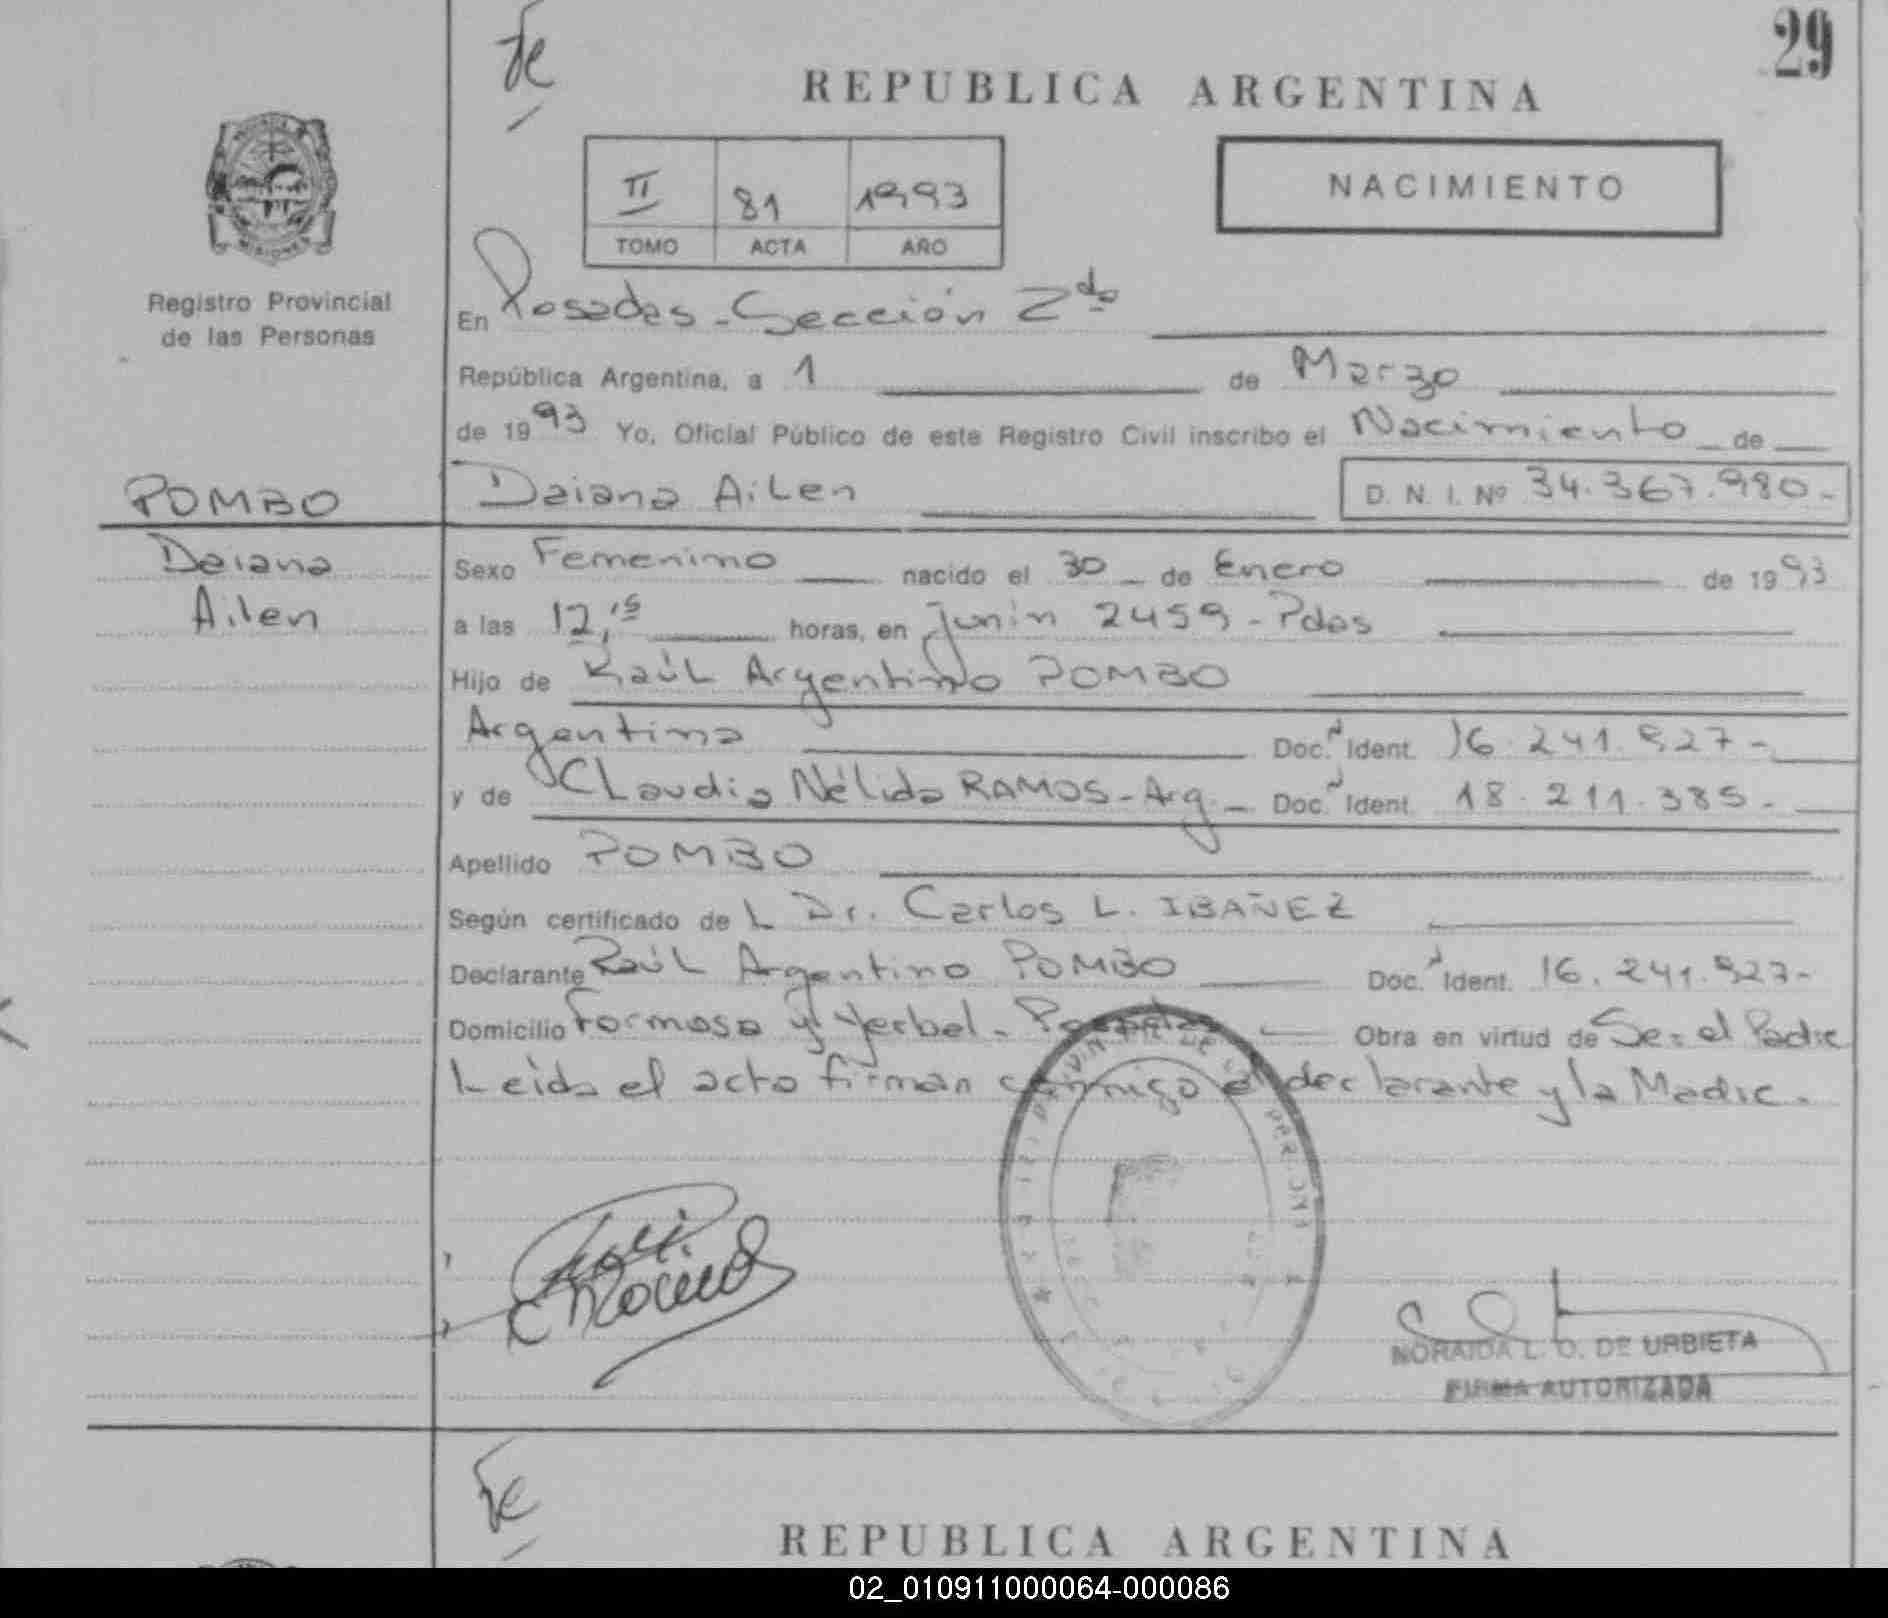 29
Fe
REPUBLICA ARGENTINA
NACIMIENTO
II 81 1993
TOMO ACTA AÑO
MISIONES
Registro Provincial
de las Personas
En Posadas - Sección 2da
República Argentina, a 1 de Marzo
de 1993 Yo, Oficial Público de este Registro Civil inscribo el Nacimiento de
POMBO
Daiana Ailen D. N. I. Nº 34.367.980.-
Daiana
Ailen
Sexo Femenino nacido el 30 de Enero de 1993
a las 12,15 horas, en Junín 2459 - Pdas
Hijo de Raúl Argentino POMBO
Argentina Doc. Ident. 16.241.927-
y de Claudia Nélida RAMOS - Arg. - Doc. Ident. 18.211.385.-
Apellido POMBO
Según certificado de L Dr. Carlos L. IBAÑEZ
Declarante Raúl Argentino POMBO Doc. Ident. 16.241.927-
Domicilio Formosa y Yerbal - Posadas Obra en virtud de Ser el Padre
Leída el acta firman conmigo el declarante y la Madre.
NORAIDA L. O. DE URBIETA
FIRMA AUTORIZADA
Fe
REPUBLICA ARGENTINA
02_010911000064-000086